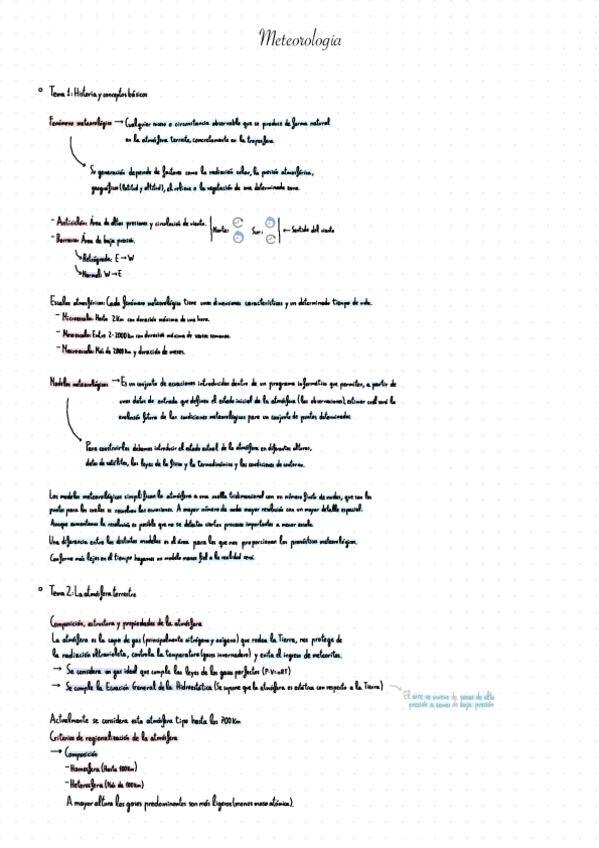 Meteorología
Tema 1: Historia y conceptos básicos
Fenómeno meteorológico → Cualquier suceso o circunstancia observable que se produce de forma natural
en la atmósfera terrestre, concretamente en la troposfera.
Su generación depende de factores como la radiación solar, la presión atmosférica,
geográficos (latitud y altitud), el relieve o la vegetación de una determinada zona.
- Anticiclón: Área de altas presiones y circulación de viento. Norte: Sur: ← Sentido del viento
- Borrasca: Área de baja presión.
Retrógrada: E→W
Normal: W→E
Escalas atmosféricas: Cada fenómeno meteorológico tiene unas dimensiones características y un determinado tiempo de vida.
- Microescala: Hasta 2Km con duración máxima de una hora.
- Mesoescala: Entre 2-2000km con duración máxima de varias semanas.
- Macroescala: Más de 2000km y duración de meses.
Modelos meteorológicos → Es un conjunto de ecuaciones introducidas dentro de un programa informático que permiten, a partir de
unos datos de entrada que definen el estado inicial de la atmósfera (las observaciones), estimar cual será la
evolución futura de las condiciones meteorológicas para un conjunto de puntos determinados.
Para construirlos debemos introducir el estado actual de la atmósfera en diferentes alturas,
datos de satélites, las leyes de la física y la termodinámica y las condiciones de contorno.
Los modelos meteorológicos simplifican la atmósfera a una malla tridimensional con un número finito de nodos, que son los
puntos para los cuales se resuelven las ecuaciones. A mayor número de nodos mayor resolución con un mayor detalle espacial.
Aunque aumentemos la resolución es posible que no se detecten ciertos procesos importantes a menor escala.
Una diferencia entre los distintos modelos es el área para los que nos proporcionan los pronósticos meteorológicos.
Conforme más lejos en el tiempo hagamos un modelo menos fiel a la realidad será.
Tema 2: La atmósfera terrestre
Composición, estructura y propiedades de la atmósfera
La atmósfera es la capa de gas (principalmente nitrógeno y oxígeno) que rodea la Tierra, nos protege de
la radiación ultravioleta, controla la temperatura (gases invernadero) y evita el ingreso de meteoritos.
→ Se considera un gas ideal que cumple las leyes de los gases perfectos (P·V=nRT)
→ Se cumple la Ecuación General de la Hidrostática (Se supone que la atmósfera es estática con respecto a la Tierra)
El aire se mueve de zonas de alta
presión a zonas de baja presión
Actualmente se considera esta atmósfera tipo hasta los 700Km
Criterios de regionalización de la atmósfera
→ Composición
- Homosfera (Hasta 100km)
- Heterosfera (Más de 100km)
A mayor altura los gases predominantes son más ligeros (menos masa atómica).